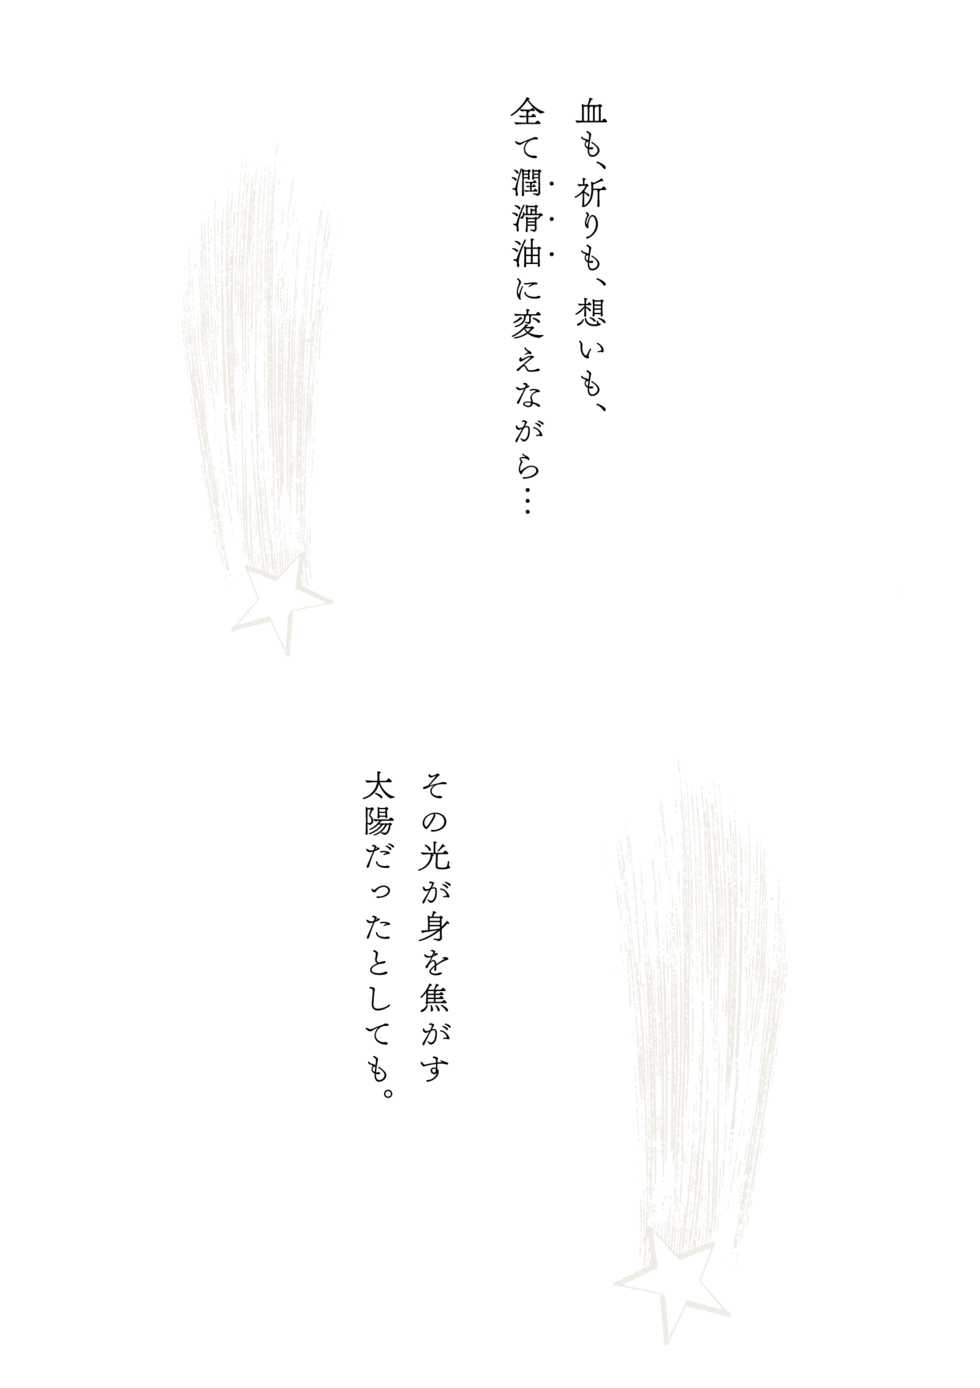 血も、祈りも、想いも、
全て潤滑油に変えながら…
その光が身を焦がす
太陽だったとしても。